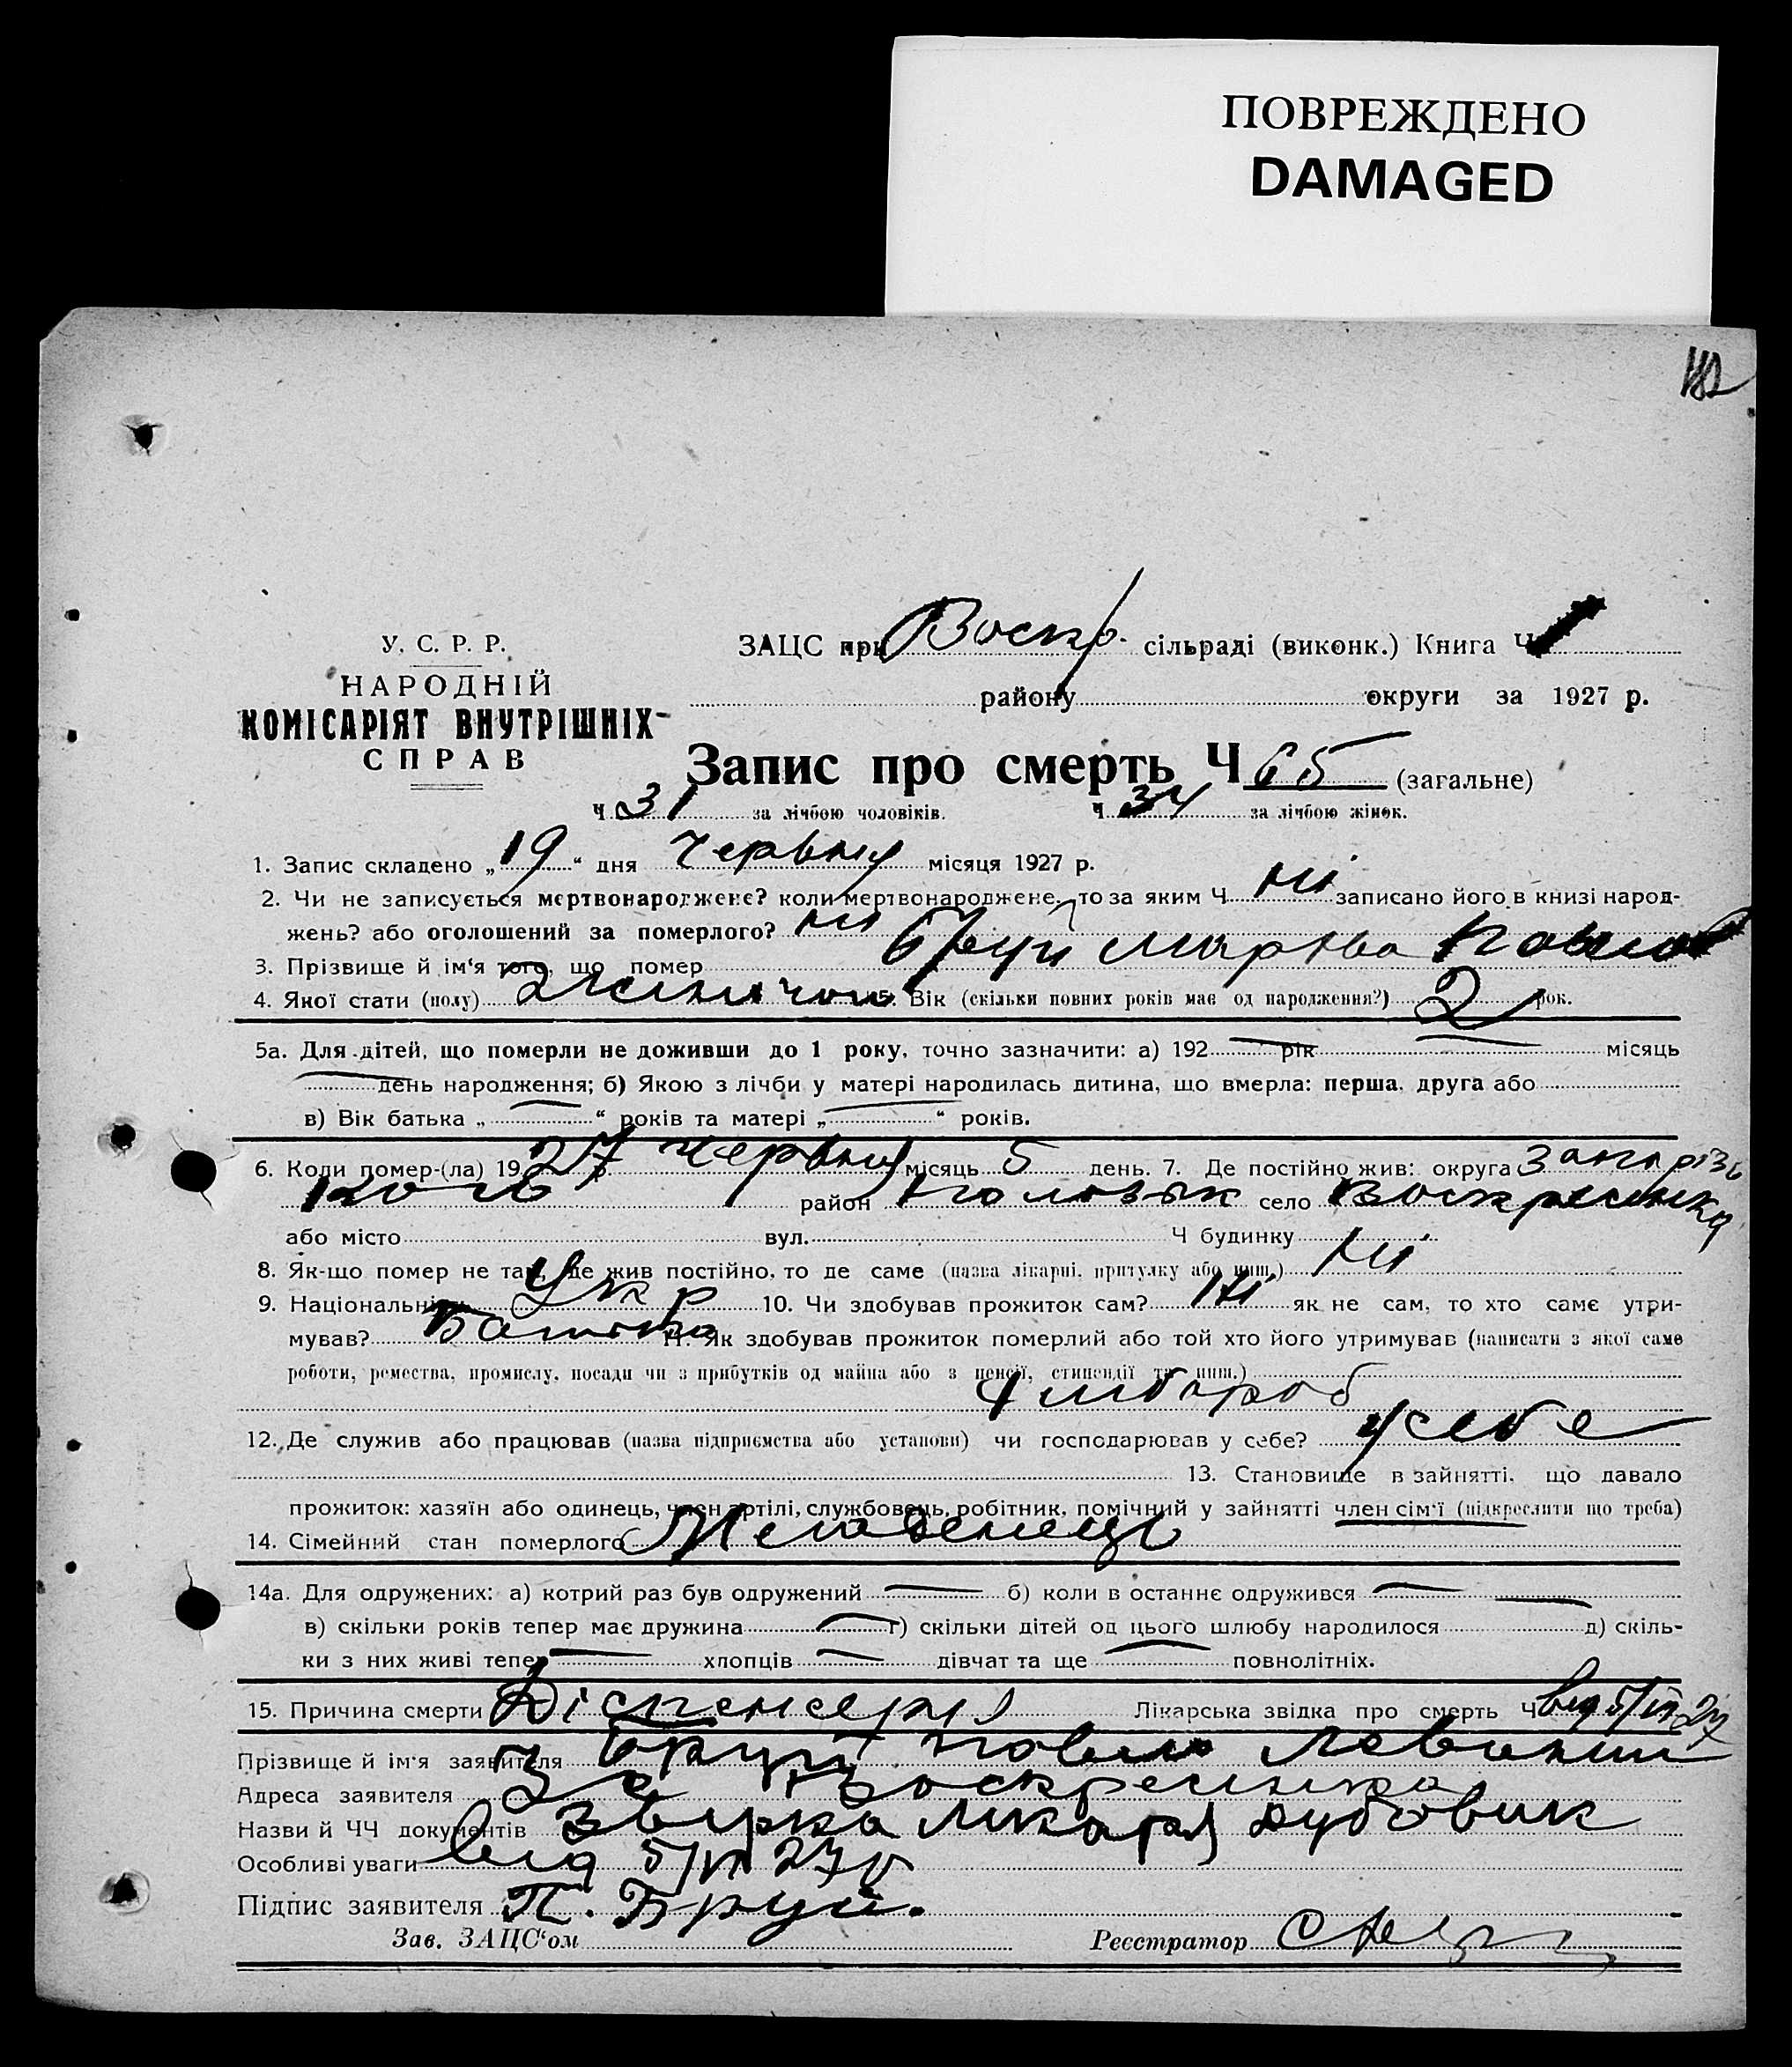 ПОВРЕЖДЕНО
DAMAGED
182
У. С. Р. Р.
НАРОДНІЙ
КОМІСАРІЯТ ВНУТРІШНІХ
СПРАВ
ЗАЦС при Воскр. сільраді (виконк.) Книга Ч 1
району округи за 1927 р.
Запис про смерть Ч 65 (загальне)
Ч 31 за лічбою чоловіків. Ч 34 за лічбою жінок.
1. Запис складено „19“ дня Червня місяця 1927 р.
2. Чи не записується мертвонароджене? коли мертвонароджене, то за яким Ч Ні записано його в книзі народ-
жень? або оголошений за померлого? ні
3. Прізвище й ім‘я того, що помер Бруй Марѣва
4. Якої стати (полу) Жіночой 5. Вік (скільки повних років має од народження?) 2 рок.
5а. Для дітей, що померли не доживши до 1 року, точно зазначити: а) 192 — рік — місяць
— день народження; б) Якою з лічби у матері народилась дитина, що вмерла: перша, друга або
в) Вік батька „—“ років та матері „—“ років.
6. Коли помер-(ла) 1927 р. Червня місяць 5 день. 7. Де постійно жив: округа Запоріз
район село Воскресенка
або місто вул. Ч будинку
8. Як-що помер не там, де жив постійно, то де саме (назва лікарні, притулку або инш.) Ні
9. Національність Укр 10. Чи здобував прожиток сам? Ні як не сам, то хто саме утри-
мував? Батько 11. Як здобував прожиток померлий або той хто його утримував (написати з якої саме
роботи, ремества, промислу, посади чи з прибутків од майна або з пенсії, стипендії та инш.)
Хлібороб
12. Де служив або працював (назва підприємства або установи) чи господарював у себе? у себе
13. Становище в зайнятті, що давало
прожиток: хазяїн або одинець, член артілі, службовець, робітник, помічний у зайнятті член сім‘ї (підкреслити що треба)
14. Сімейний стан померлого Младенець
14а. Для одружених: а) котрий раз був одружений — б) коли в останнє одружився —
в) скільки років тепер має дружина — г) скільки дітей од цього шлюбу народилося д) скіль-
ки з них живі тепер — хлопців — дівчат та ще — повнолітніх.
15. Причина смерти Діспенсерія Лікарська звідка про смерть Ч від 5/VI 27
Прізвище й ім‘я заявителя Бруй Павло
Адреса заявителя З с Воскресенка
Назви й ЧЧ документів Звірка лікаря Дубовик
Особливі уваги від 5/VI 27 р
Підпис заявителя П. Бруй.
Зав. ЗАЦС‘ом Реєстратор